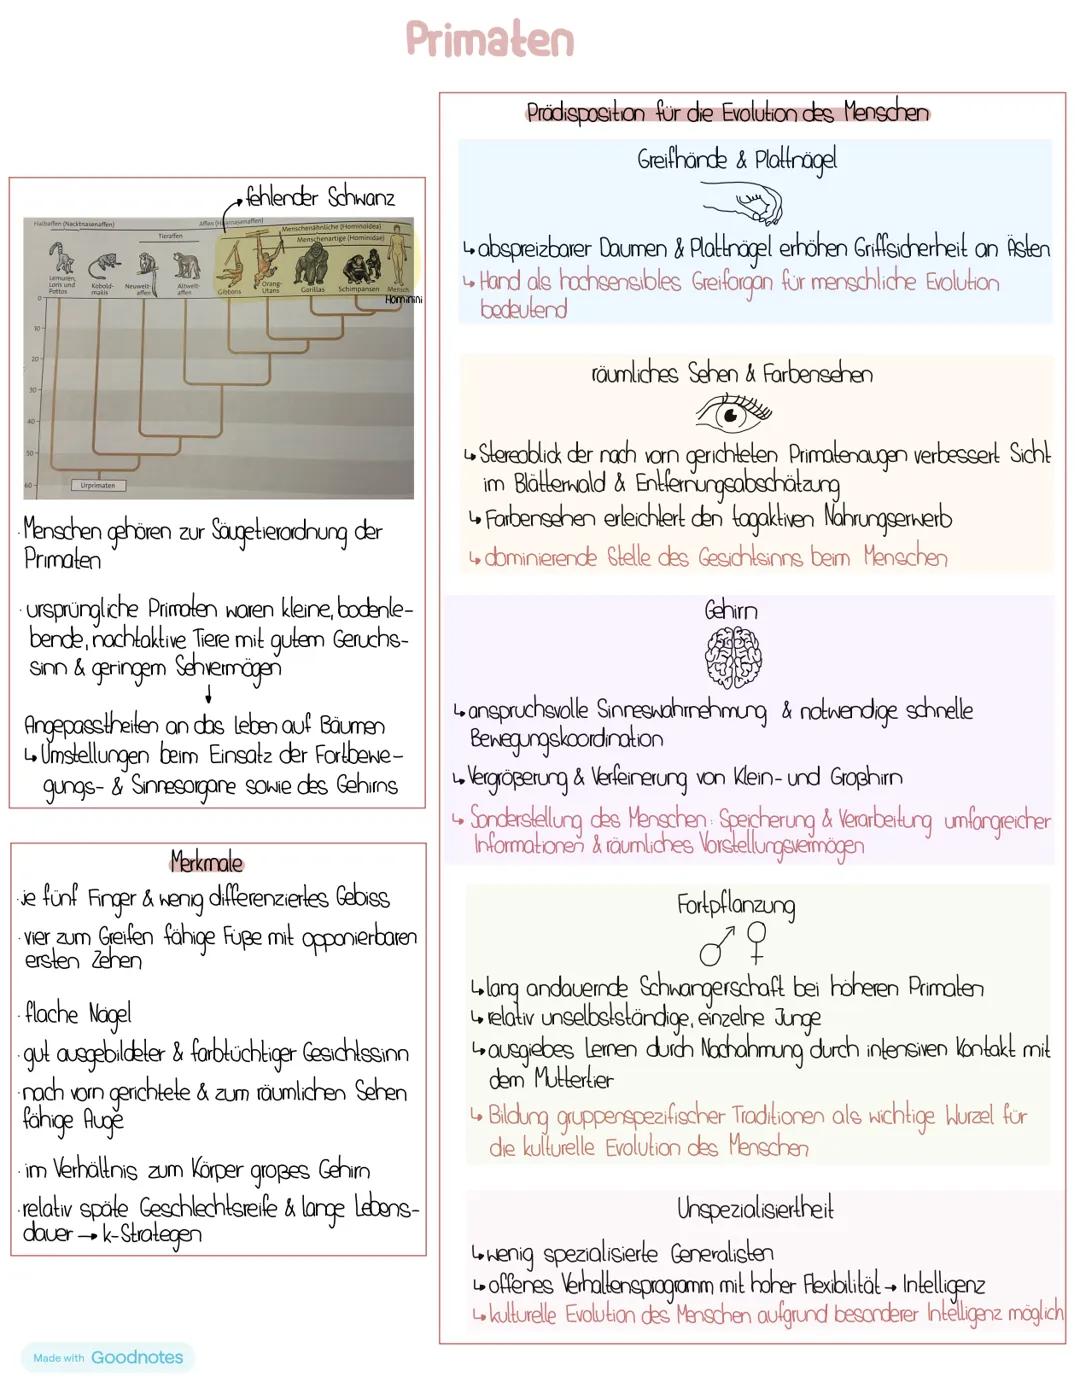 Primaten
fehlender Schwanz
Halbaffen (Nacktnasenaffen)
Affen (Haarnasenaffen)
Tieraffen
Menschenähnliche (Hominoidea)
Menschenartige (Hominidae)
Lemuren,
Loris und
Pottos
Kobold-
makis
Neuwelt-
affen
Altwelt-
affen
Gibbons
Orang-
Utans
Gorillas
Schimpansen
Mensch
Hominini
0
10
20
30
40
50
60
Urprimaten
· Menschen gehören zur Säugetierordnung der
Primaten
· ursprüngliche Primaten waren kleine, bodenle-
bende, nachtaktive Tiere mit gutem Geruchs-
sinn & geringem Sehvermögen
↓
Angepasstheiten an das Leben auf Bäumen
↳ Umstellungen beim Einsatz der Fortbewe-
gungs- & Sinnesorgane sowie des Gehirns
Merkmale
· je fünf Finger & wenig differenziertes Gebiss
· vier zum Greifen fähige Füße mit opponierbaren
ersten Zehen
· flache Nägel
· gut ausgebildeter & farbtüchtiger Gesichtssinn
· nach vorn gerichtete & zum räumlichen Sehen
fähige Auge
· im Verhältnis zum Körper großes Gehirn
· relativ späte Geschlechtsreife & lange Lebens-
dauer → k-Strategen
Prädisposition für die Evolution des Menschen
Greifhände & Plattnägel
↳ abspreizbarer Daumen & Plattnägel erhöhen Griffsicherheit an Ästen
↳ Hand als hochsensibles Greiforgan für menschliche Evolution
bedeutend
räumliches Sehen & Farbensehen
↳ Stereoblick der nach vorn gerichteten Primatenaugen verbessert Sicht
im Blätterwald & Entfernungsabschätzung
↳ Farbensehen erleichtert den tagaktiven Nahrungserwerb
↳ dominierende Stelle des Gesichtsinns beim Menschen
Gehirn
↳ anspruchsvolle Sinneswahrnehmung & notwendige schnelle
Bewegungskoordination
↳ Vergrößerung & Verfeinerung von Klein- und Großhirn
↳ Sonderstellung des Menschen: Speicherung & Verarbeitung umfangreicher
Informationen & räumliches Vorstellungsvermögen
Fortpflanzung
♂ ♀
↳ lang andauernde Schwangerschaft bei höheren Primaten
↳ relativ unselbstständige, einzelne Junge
↳ ausgiebes Lernen durch Nachahmung durch intensiven Kontakt mit
dem Muttertier
↳ Bildung gruppenspezifischer Traditionen als wichtige Wurzel für
die kulturelle Evolution des Menschen
Unspezialisiertheit
↳ wenig spezialisierte Generalisten
↳ offenes Verhaltensprogramm mit hoher Flexibilität → Intelligenz
↳ kulturelle Evolution des Menschen aufgrund besonderer Intelligenz möglich
Made with Goodnotes